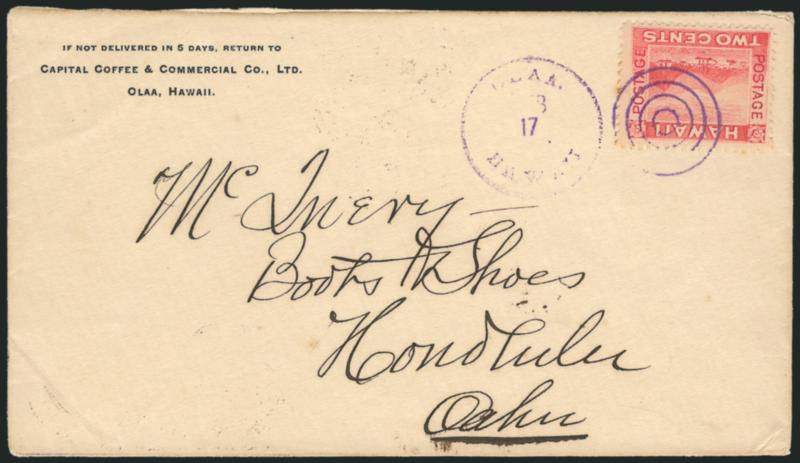 IF NOT DELIVERED IN 5 DAYS, RETURN TO
CAPITAL COFFEE & COMMERCIAL CO., LTD.
OLAA, HAWAII.
OLAA.
17
HAWAII
TWO CENTS
POSTAGE
POSTAGE
HAWAII
McInery
Boots & Shoes
Honolulu
Oahu